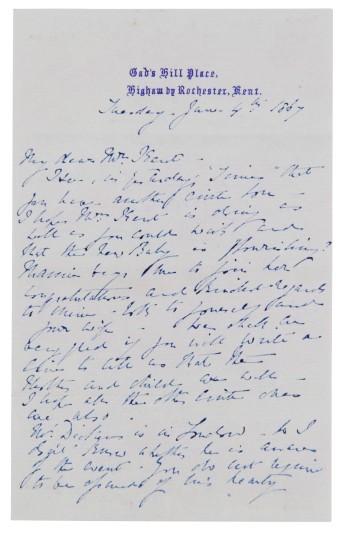 Gad's Hill Place,
Higham by Rochester, Kent.
Tuesday - June 4th 1867
My dear Mr. Kent -
I see, in yesterday's "Times" that
you have another little son -
I hope Mrs. Kent is doing as
well as you could wish and
that the new Baby is flourishing?
Mamie begs me to join her
congratulations and kindest regards
to mine - both to yourself and
your wife - We shall be
very glad if you will write a
line to tell us that the
Mother and child are well -
I hope all the other little ones
are also -
Mr. Dickens is in London - so I
don't know whether he is aware
of the event - You do not require
to be assured of his hearty